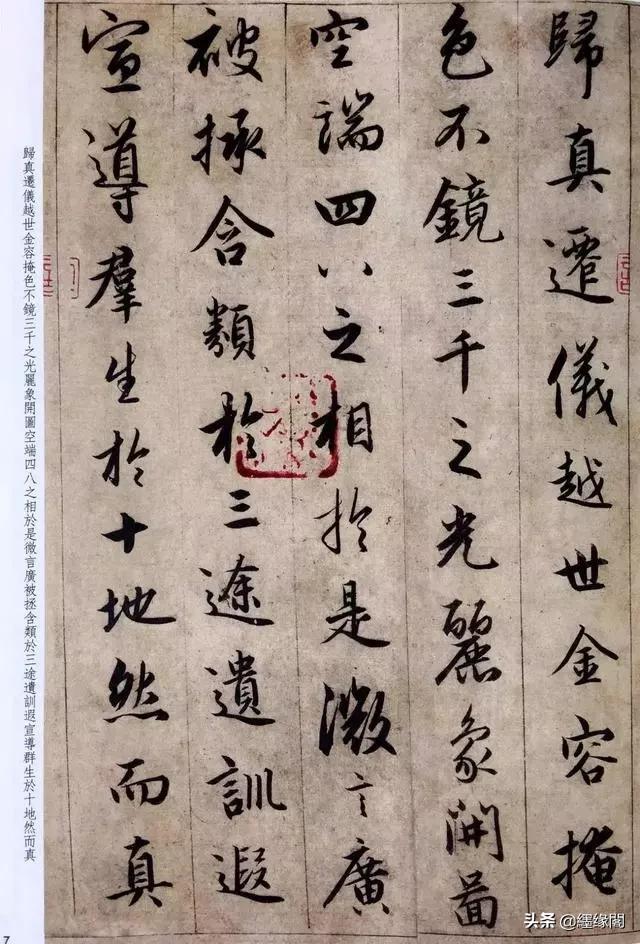 歸真遷儀越世金容掩
色不鏡三千之光麗象開啚
空端四八之相於是微言廣
被拯含類於三途遺訓遐
宣導羣生於十地然而真
歸真遷儀越世金容掩色不鏡三千之光麗象開圖空端四八之相於是微言廣被拯含類於三途遺訓遐宣導群生於十地然而真
7
头条 @纆缘閣